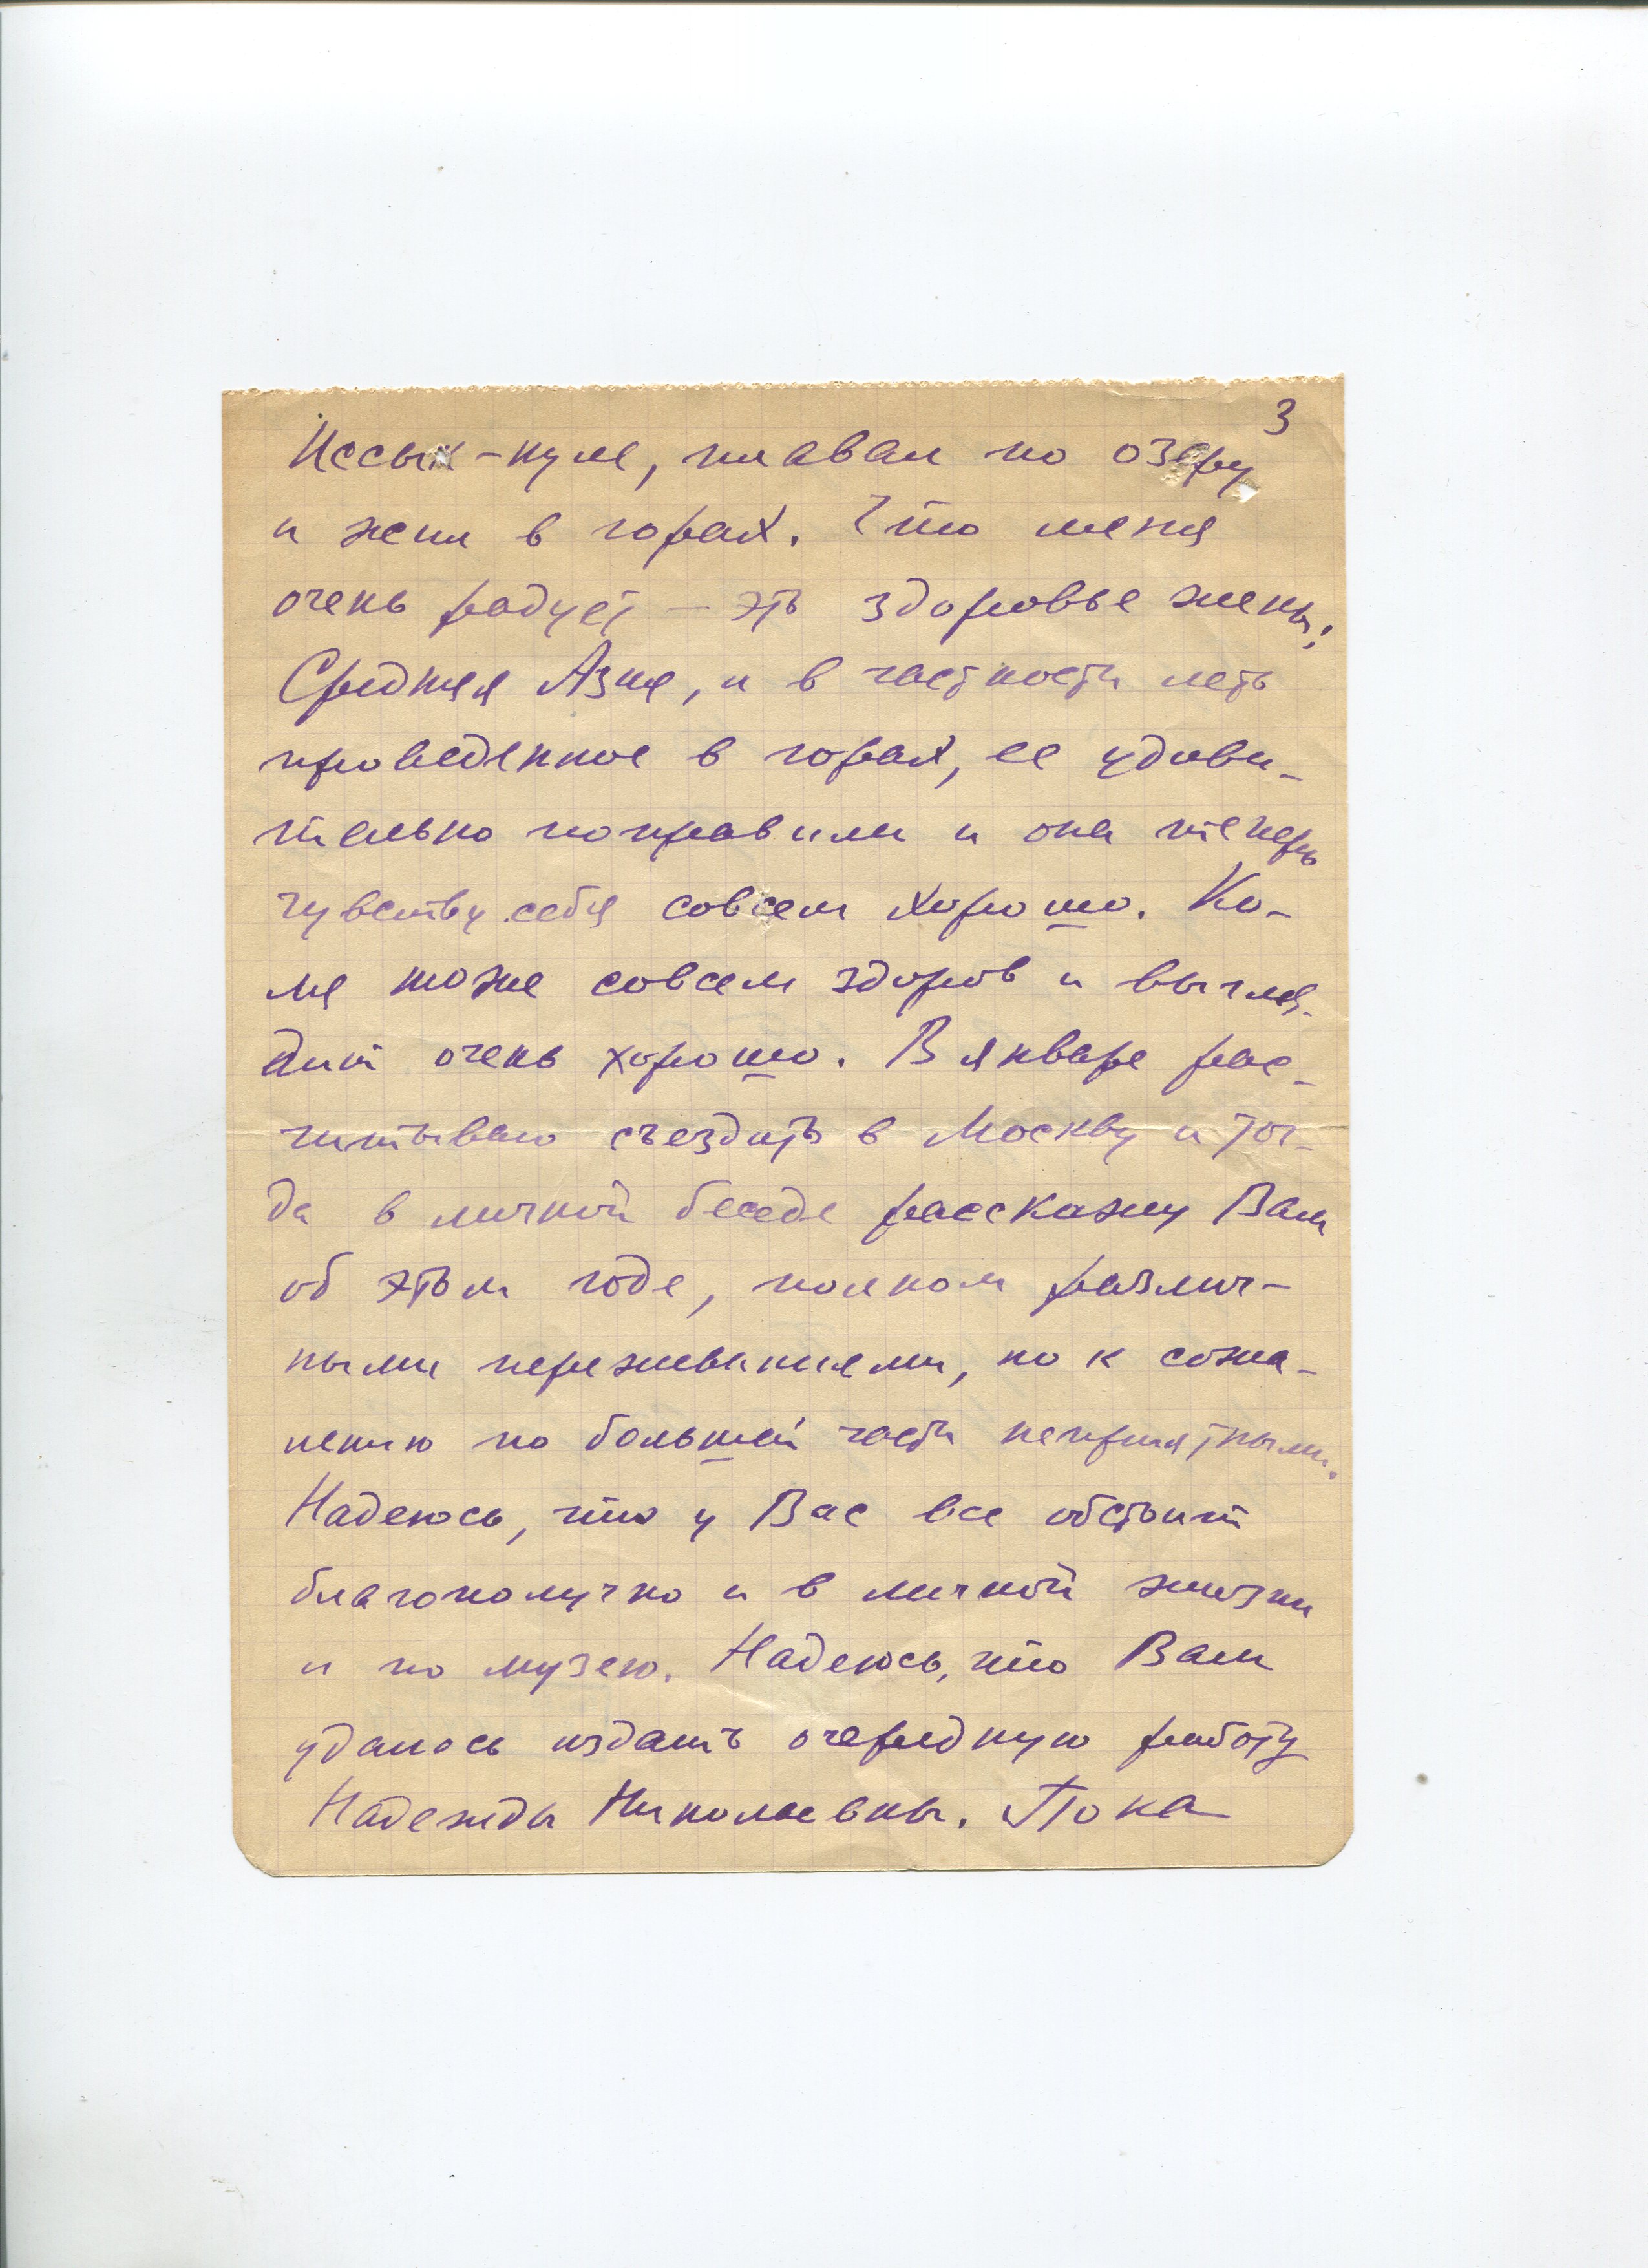 3
Иссык-куле, плавал по озеру
и жил в горах. Что меня
очень радует — это здоровье жены;
Средняя Азия, и в частности лето
проведенное в горах, ее удиви-
тельно поправили и она теперь
чувству себя совсем хорошо. Ко-
ля тоже совсем здоров и выгля-
дит очень хорошо. В январе рас-
читываю съездить в Москву и тог-
да в личной беседе расскажу Вам
об этом годе, полном различ-
ными переживаниями, но к сожа-
лению по большей части неприятными.
Надеюсь, что у Вас все обстоит
благополучно и в личной жизни
и по музею. Надеюсь, что Вам
удалось издать очередную работу
Надежды Николаевны. Пока